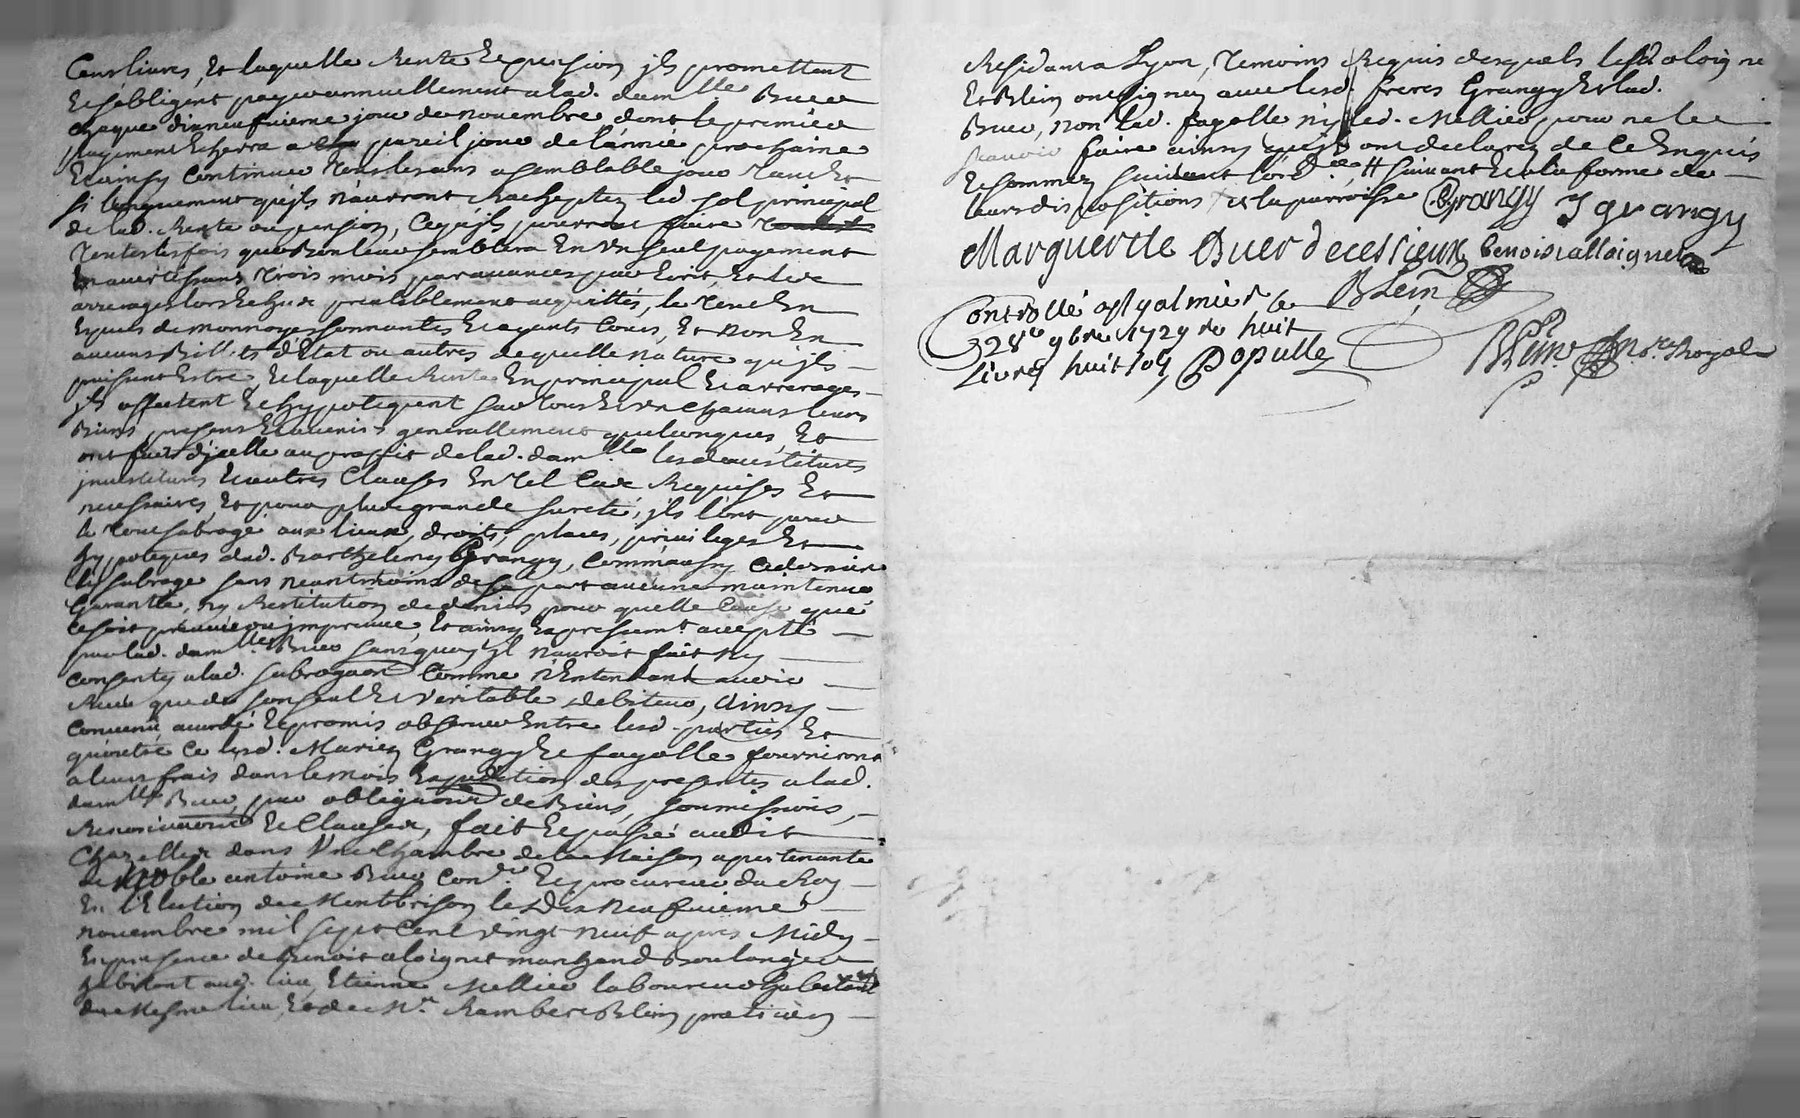 Cens livres, Et laquelle Rente Et pension jls promettent
Et sobligent payer annuellement a lad. dam.lle Buer
chaque dixneufuieme jour de novembre dont le premier
payement Echerra a pareil jour de l'année prochaine
Et ainsy continuer tous les ans a semblable jour tant Et
si longuement qu'jls n'auront Racheptez led. sol principal
de lad. Rente ou pension, Ce qu'jls pourront faire
toutesfois que bon leur semblera En un seul payement
En avertissant trois mois par auance par Ecrit, Et les
arrerages lors Echus prealablement acquittés, le tout En
Especes de monnoyes sonnantes Et ayants Cours, Et non En
aucuns Billets d'Etat ou autres de quelle nature qu'jls
puissent Estre, Et laquelle Rente En principal Et arrerages
jls affectent Et hypotequent sur tous Et un chacuns leurs
Biens presens Et auenirs generallement quelconques, Et
ont fait d'jcelle au proffit de lad. dam.lle les deuestitures
jnuestitures Et autres Clauses En tel Cas Requises Et
necessaires, Et pour plus grande sureté, jls l'ont pour
le tout subrogé aux lieux, droits, places, priuileges Et
hypoteques dud. Barthelemy Grangy, Comme aussy ce dernier
l'a subrogé sans neantmoins de sa part aucune maintenue
Garantie, ny Restitution de deniers pour quelle Cause que
ce soit preuue ou jmpreuue, Et ainsy Expressem.t accepté
par lad. dam.lle Buer sans quoy jl n'auroit fait ny
Consenty a lad. subrogaon Comme n'Entendant auoir
affaire que de son seul Et veritable debiteur, Ainsy
Conuenu accordé Et promis obseruer Entre lesd. parties Et
qu'outre ce lesd. Mariez Grangy Et fayolle fourniront
a leurs frais dans le mois Expedition des presentes a lad.
dam.lle Buer, par obligaons de Biens, soumissions,
Renonciaons Et Clauses, fait Et passé audit
Chazelles dans Une Chambre de la Maison apartenante
a Noble antoine Buer Con.er Et procureur du Roy
En l'Election de Montbrison le Dix neufuieme
nouembre mil sept Cent vingt neuf apres Midy
En presence de Benoit aloignet marchand Boulanger
habitant aud. lieu, Etienne Mellier laboureur habitant
du Mesme lieu, Et de M.r Rambert Blein praticien
Residant a Lyon, temoins Requis desquels lesd. aloignet
Et Blein ont signez auec lesd. freres Grangy Et lad.
Buer, non lad. fayolle ny led. Mellier pour ne le
sçauoir faire ainsy qu'jls ont declarez de ce Enquis
Et sommez suiuant l'ord.ce # suiuant Et a la forme de
leurs dispositions Et la parroisse Grangy J grangy
Marguerite Buer decessieux Benoist alloignet
Blein
Controllé a St galmier le
28e 9bre 1729 rs huit
Livres huit sols Populle
Blein no.re Royal